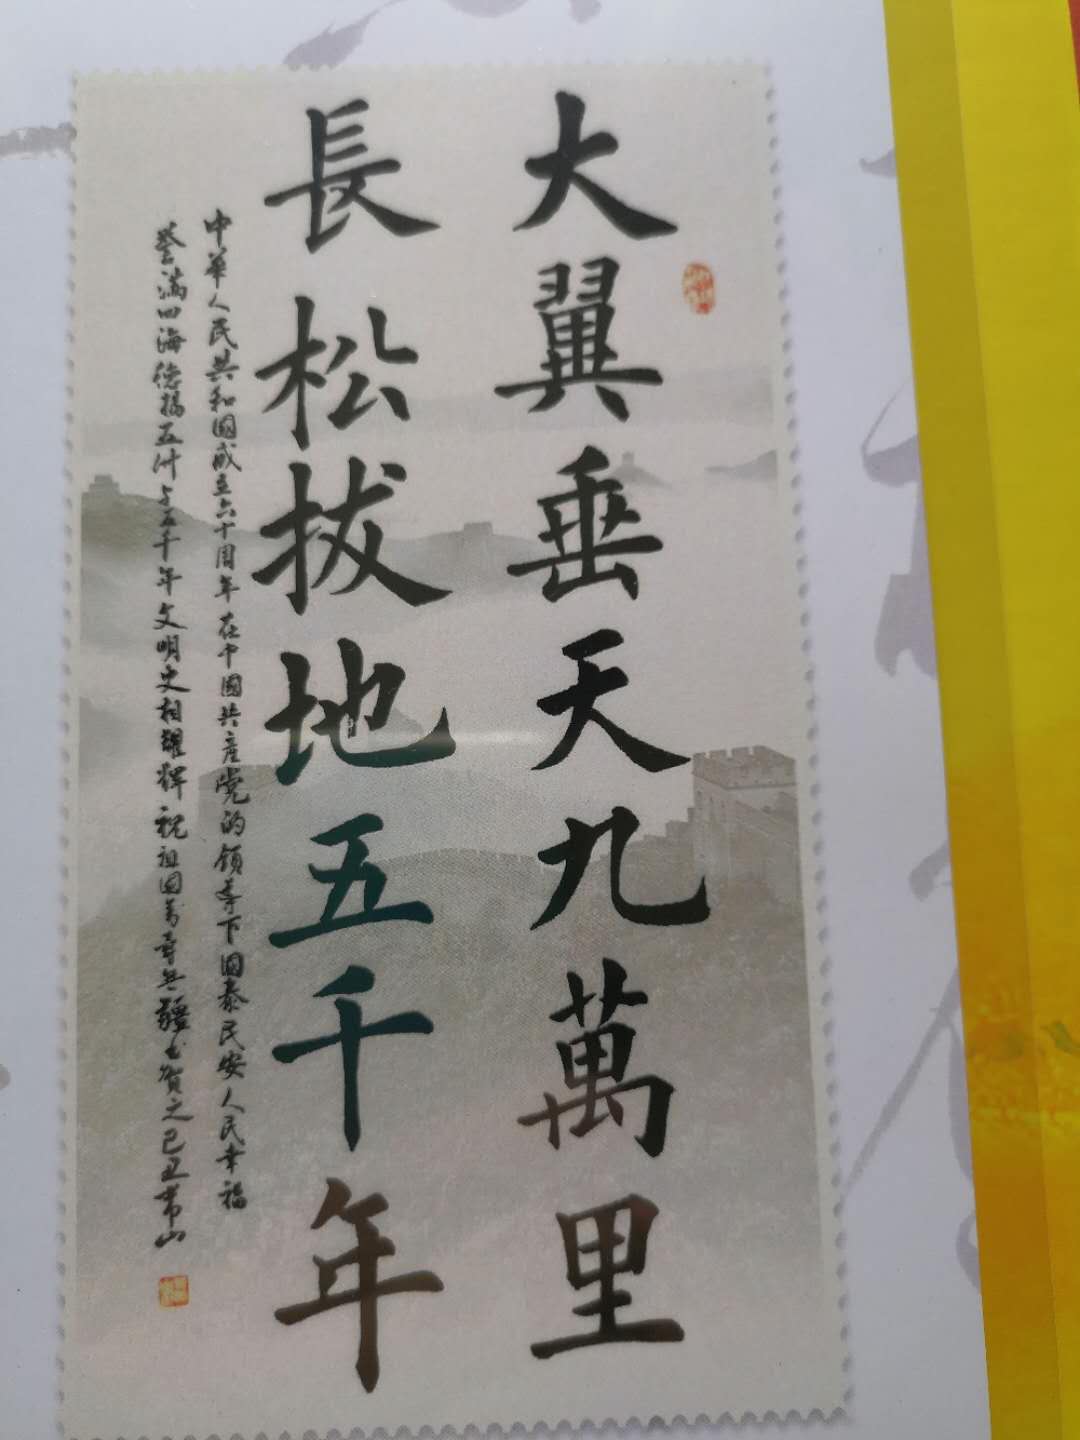 大翼垂天九萬里
長松拔地五千年
中華人民共和國成立六十周年在中國共產党的領導下國泰民安人民幸福
誉满四海德揚五洲与五千年文明史相耀輝祝祖国万寿无疆书賀之己丑常山